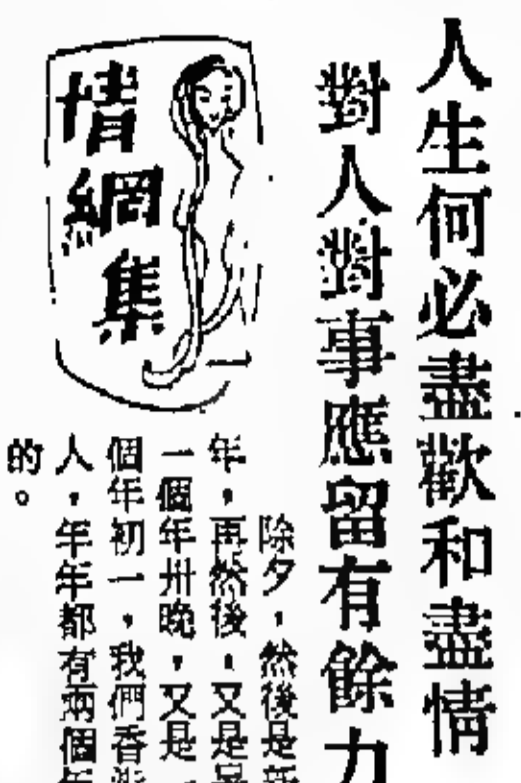 人生何必盡歡和盡情
對人對事應留有餘力
情網集
除夕，然後是新
年，再然後，又是
一個年卅晚，又是一
個年初一，我們香港
人，年年都有兩個年
的。